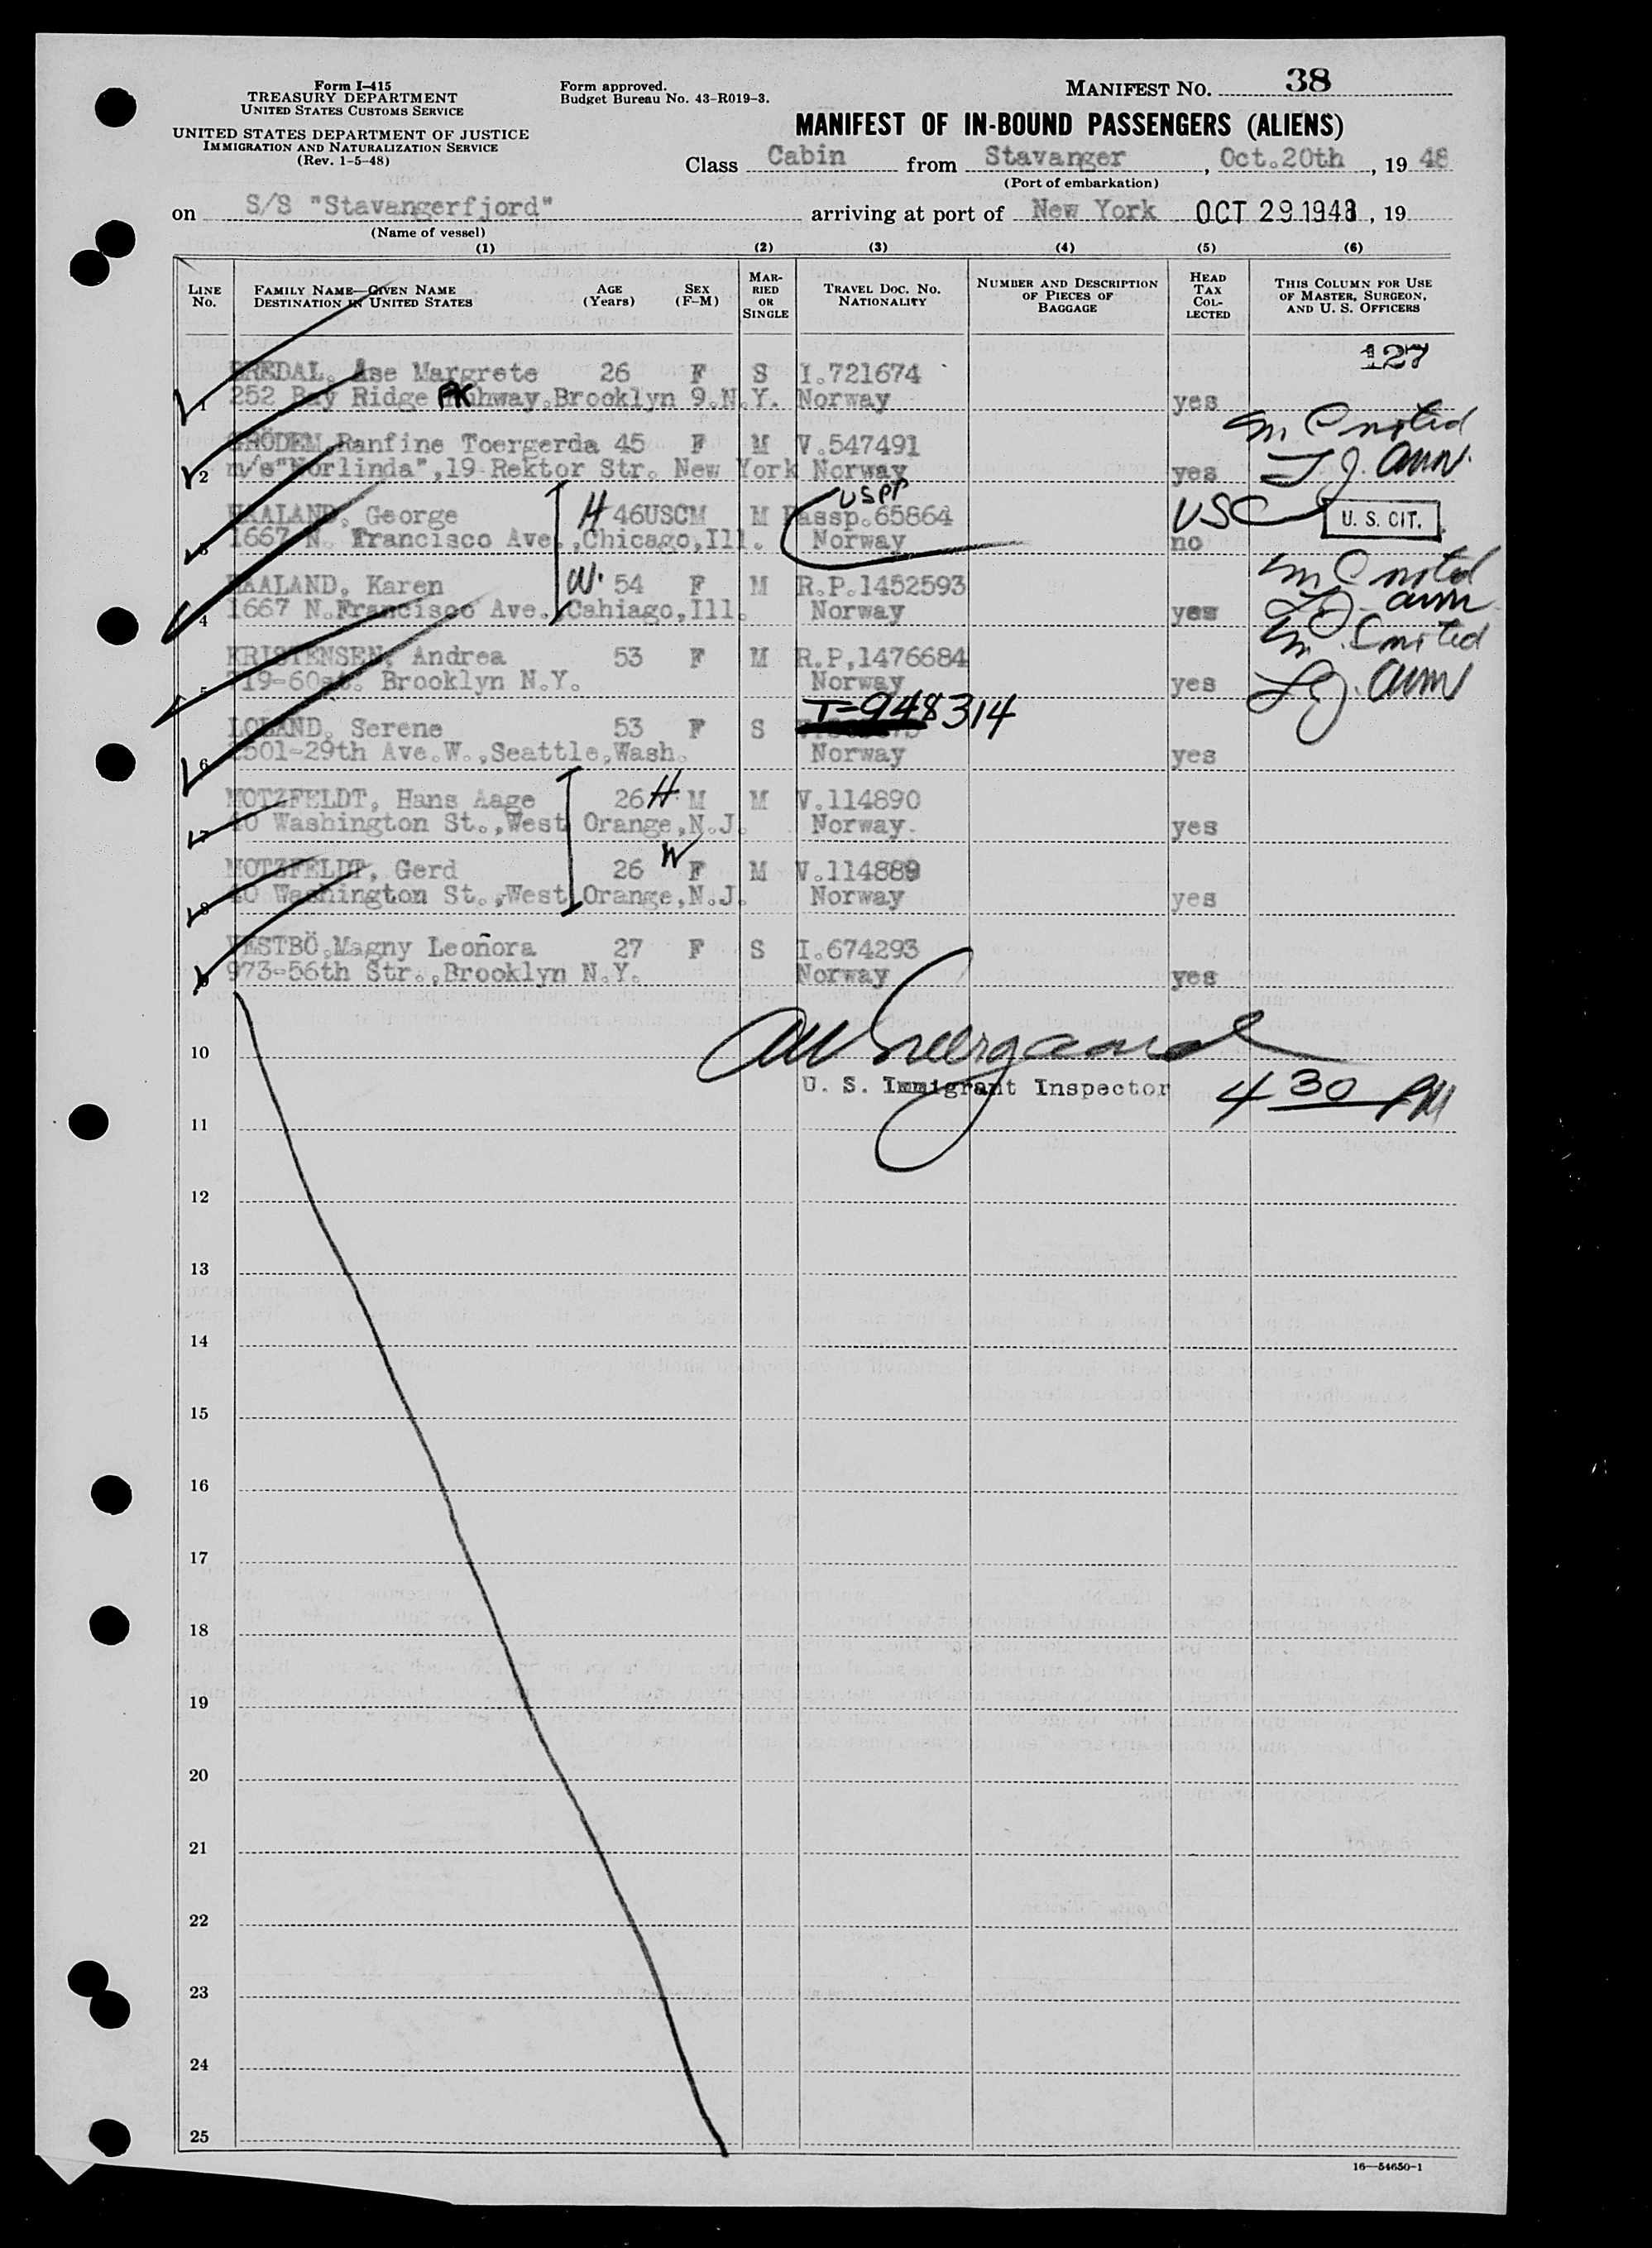 Form I-415
TREASURY DEPARTMENT
UNITED STATES CUSTOMS SERVICE
UNITED STATES DEPARTMENT OF JUSTICE
IMMIGRATION AND NATURALIZATION SERVICE
(Rev. 1-5-48)
Form approved.
Budget Bureau No. 43-R019-3.
MANIFEST NO. 38
MANIFEST OF IN-BOUND PASSENGERS (ALIENS)
Class Cabin from Stavanger, Oct.20th, 19 48
(Port of embarkation)
on S/S "Stavangerfjord" arriving at port of New York OCT 29 1948, 19
(Name of vessel)
(1) (2) (3) (4) (5) (6)
LINE No.
FAMILY NAME—GIVEN NAME
DESTINATION IN UNITED STATES
AGE (Years)
SEX (F-M)
MARRIED OR SINGLE
TRAVEL DOC. NO. NATIONALITY
NUMBER AND DESCRIPTION OF PIECES OF BAGGAGE
HEAD TAX COLLECTED
THIS COLUMN FOR USE OF MASTER, SURGEON, AND U. S. OFFICERS
127
BREDAL, Åse Margrete 26 F S I.721674
1 252 Bay Ridge PK hway, Brooklyn 9.N.Y. Norway yes
GRÖDEM, Ranfine Toergerda 45 F M V.547491
2 m/s"Norlinda",19 Rektor Str. New York Norway yes
noted
USPP
HAALAND, George H 46USCM M Passp.65864 USC U. S. CIT.
3 1667 N. Francisco Ave.,Chicago,Ill. Norway no
HAALAND, Karen W. 54 F M R.P.1452593 noted
4 1667 N.Francisco Ave.,Cahiago,Ill. Norway yes
KRISTENSEN, Andrea 53 F M R.P,1476684 noted
5 719-60st. Brooklyn N.Y. Norway yes
T-948314
LOBAND, Serene 53 F S
6 2501-29th Ave.W.,Seattle,Wash. Norway yes
MOTZFELDT, Hans Aage 26 H M M V.114890
7 40 Washington St.,West Orange,N.J. Norway. yes
MOTZFELDT, Gerd 26 W F M V.114889
8 40 Washington St.,West Orange,N.J. Norway yes
VESTBÖ,Magny Leonora 27 F S I.674293
9 973-56th Str.,Brooklyn N.Y. Norway yes
10
U. S. Immigrant Inspector 4 30 PM
11
12
13
14
15
16
17
18
19
20
21
22
23
24
25
16—54650-1